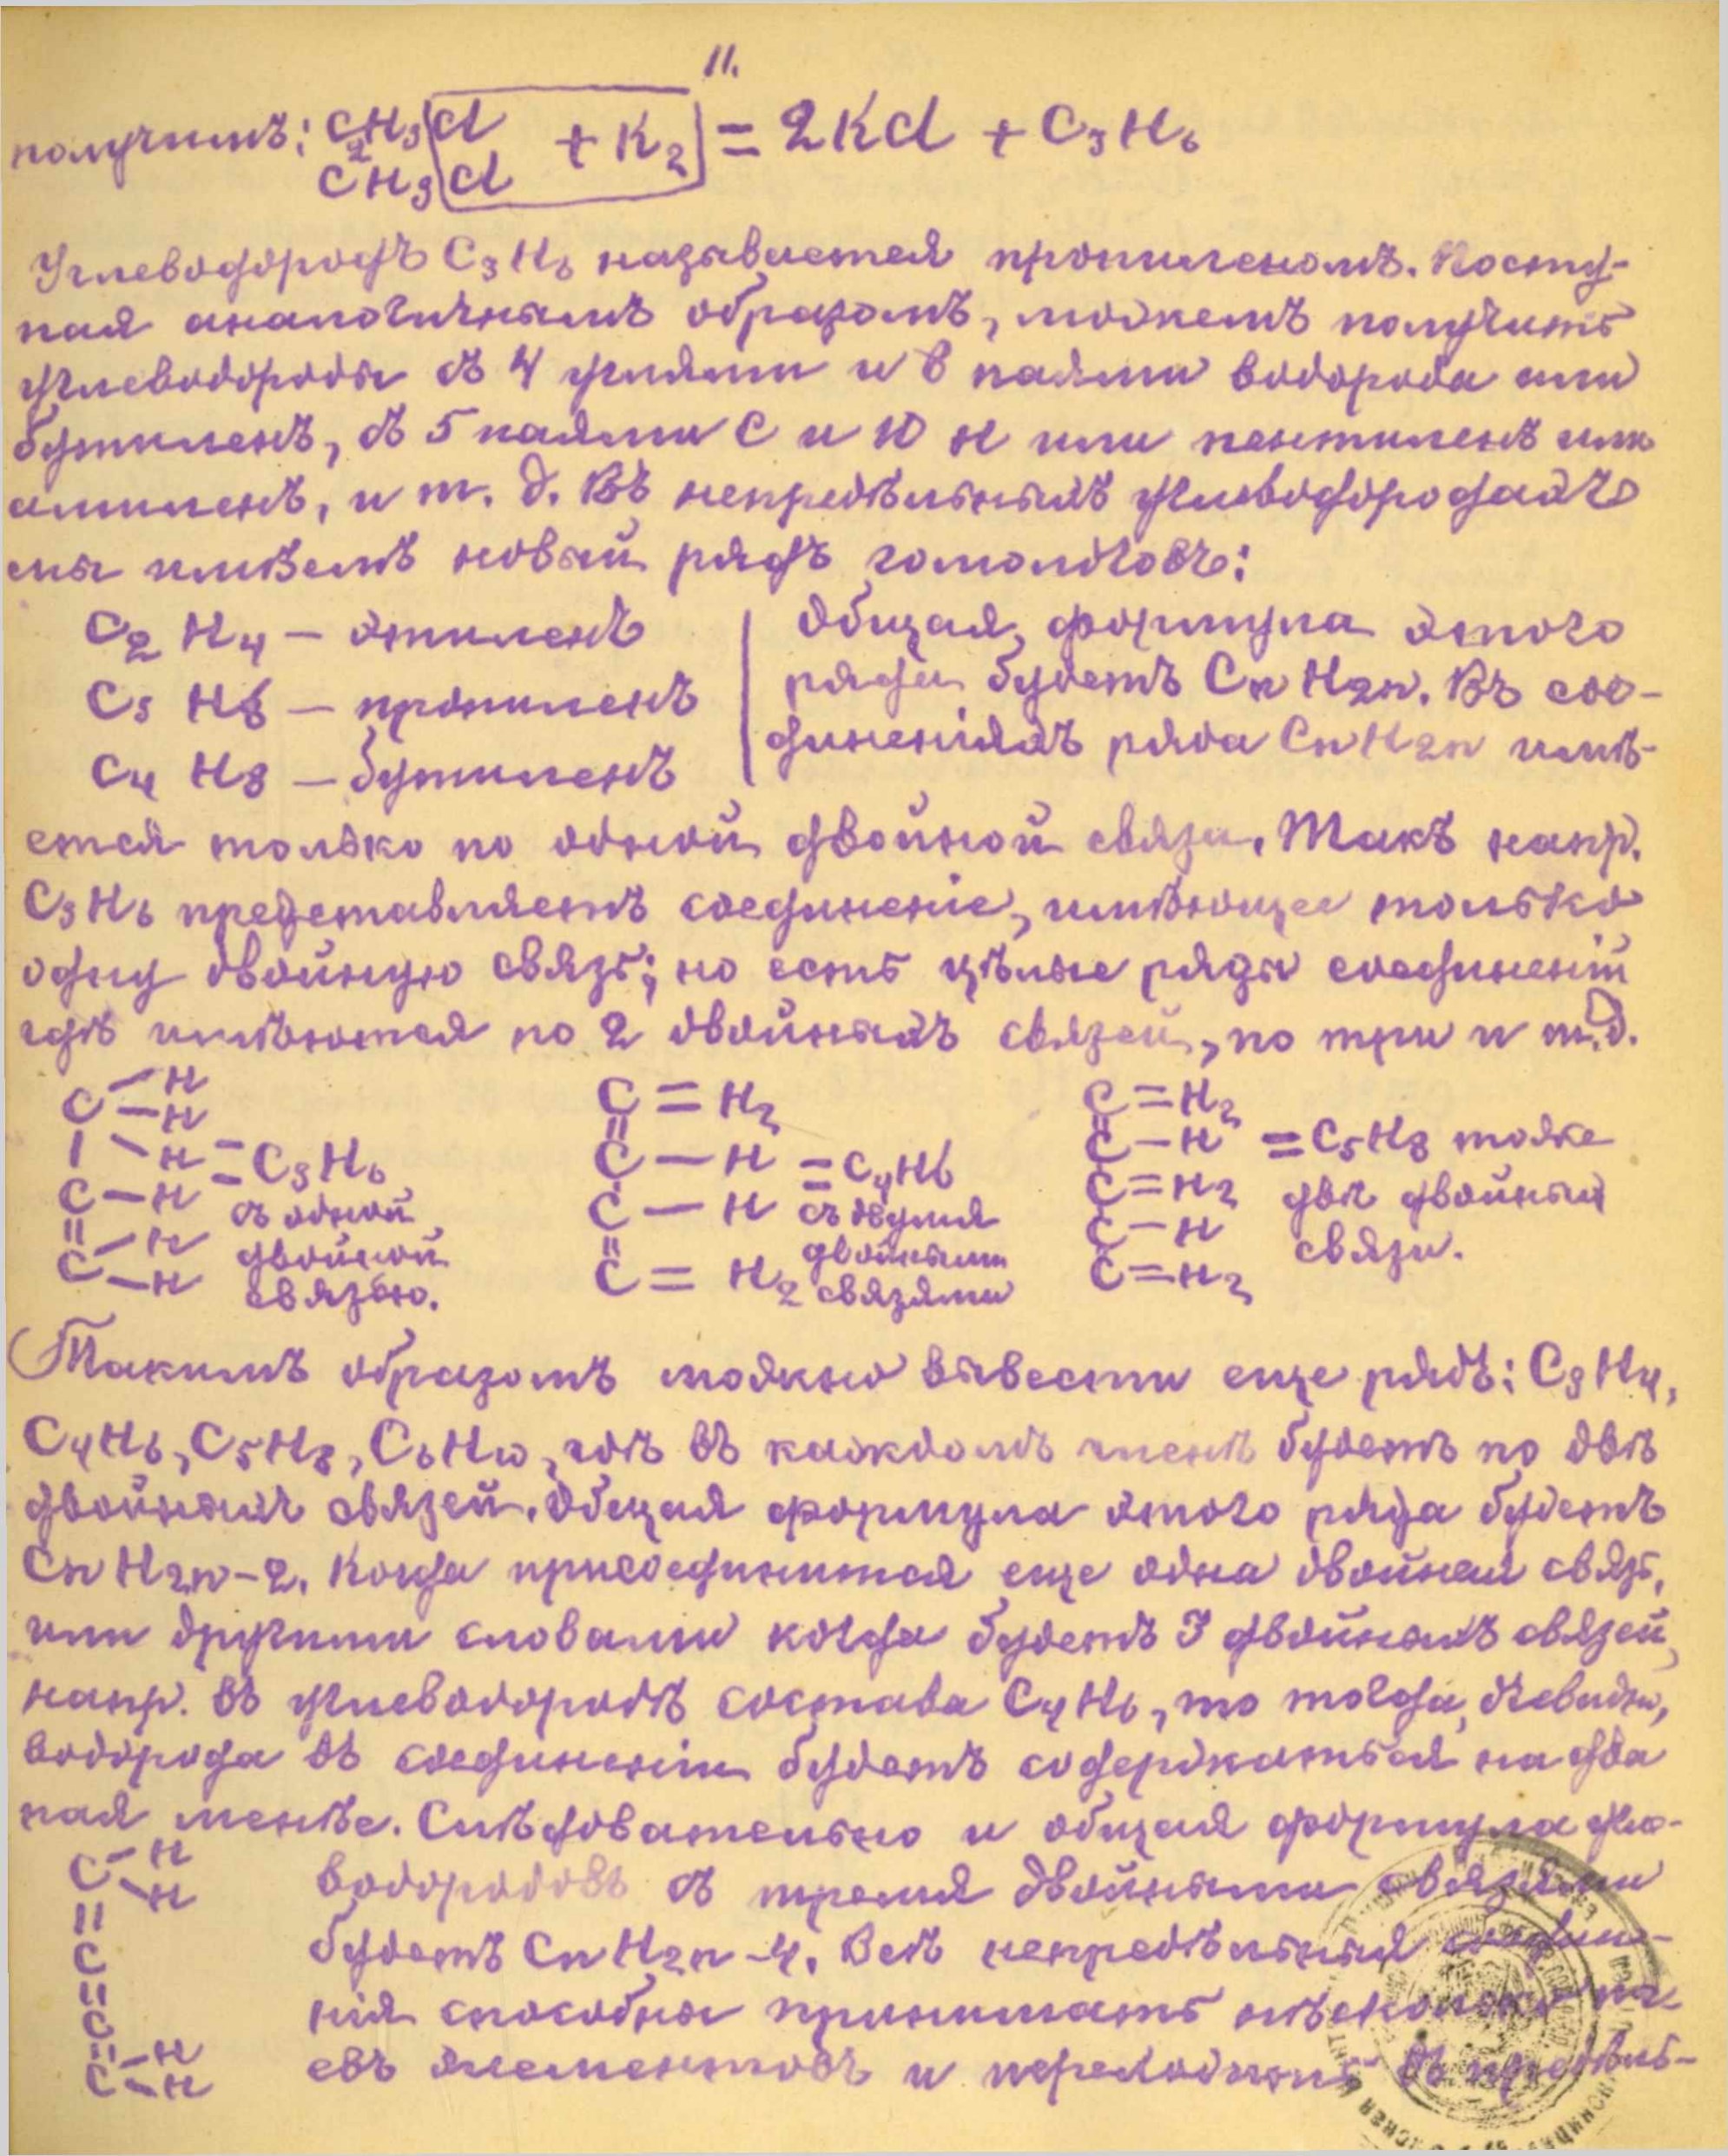 11.
получимъ: C2H3|Cl + K2| = 2KCl + C3H6
CH3|Cl
Углеводородъ C3H6 называется пропиленомъ. Посту-
пая аналогичнымъ образомъ, можемъ получить
углеводороды съ 4 углями и 8 паями водорода или
бутиленъ, съ 5 паями C и 10 H или пентиленъ или
амиленъ, и т. д. Въ непредѣльныхъ углеводородахъ
мы имѣемъ новый рядъ гомологовъ:
C2 H4 – этиленъ
C3 H6 – пропиленъ
C4 H8 – бутиленъ
Общая формула этого
ряда будетъ Cn H2n. Въ сое-
диненіяхъ ряда CnH2n имѣ-
ется только по одной двойной связи. Такъ напр.
C3H6 представляетъ соединеніе, имѣющее только
одну двойную связь; но есть цѣлые ряды соединеній
гдѣ имѣются по 2 двойныхъ связей, по три и т.д.
C – H
– H
| – H = C3H6
C – H съ одной
|| – H двойной
C – H связью.
C = H2
||
C – H = C4H6
C – H съ двумя
|| двойными
C = H2 связями
C = H2
||
C – H = C5H8 тоже
C = H2 двѣ двойныя
C – H связи.
C = H2
Такимъ образомъ можно вывести еще рядъ: C3H4,
C4H6, C5H8, C6H10, гдѣ въ каждомъ членѣ будетъ по двѣ
двойныхъ связей. Общая формула этого ряда будетъ
Cn H2n-2. Когда присоединится еще одна двойная связь,
или другими словами когда будетъ 3 двойныхъ связей,
напр. въ углеводородѣ состава C4H6, то тогда, очевидно,
водорода въ соединеніи будетъ содержаться на два
пая менѣе. Слѣдовательно и общая формула угле-
водородовъ съ тремя двойными связями
будетъ Cn H2n-4. Всѣ непредѣльныя соедине-
нія способны принимать нѣсколько па-
евъ элементовъ и переходить въ предѣль-
C – H
– H
||
C
||
C
||
C – H
– H